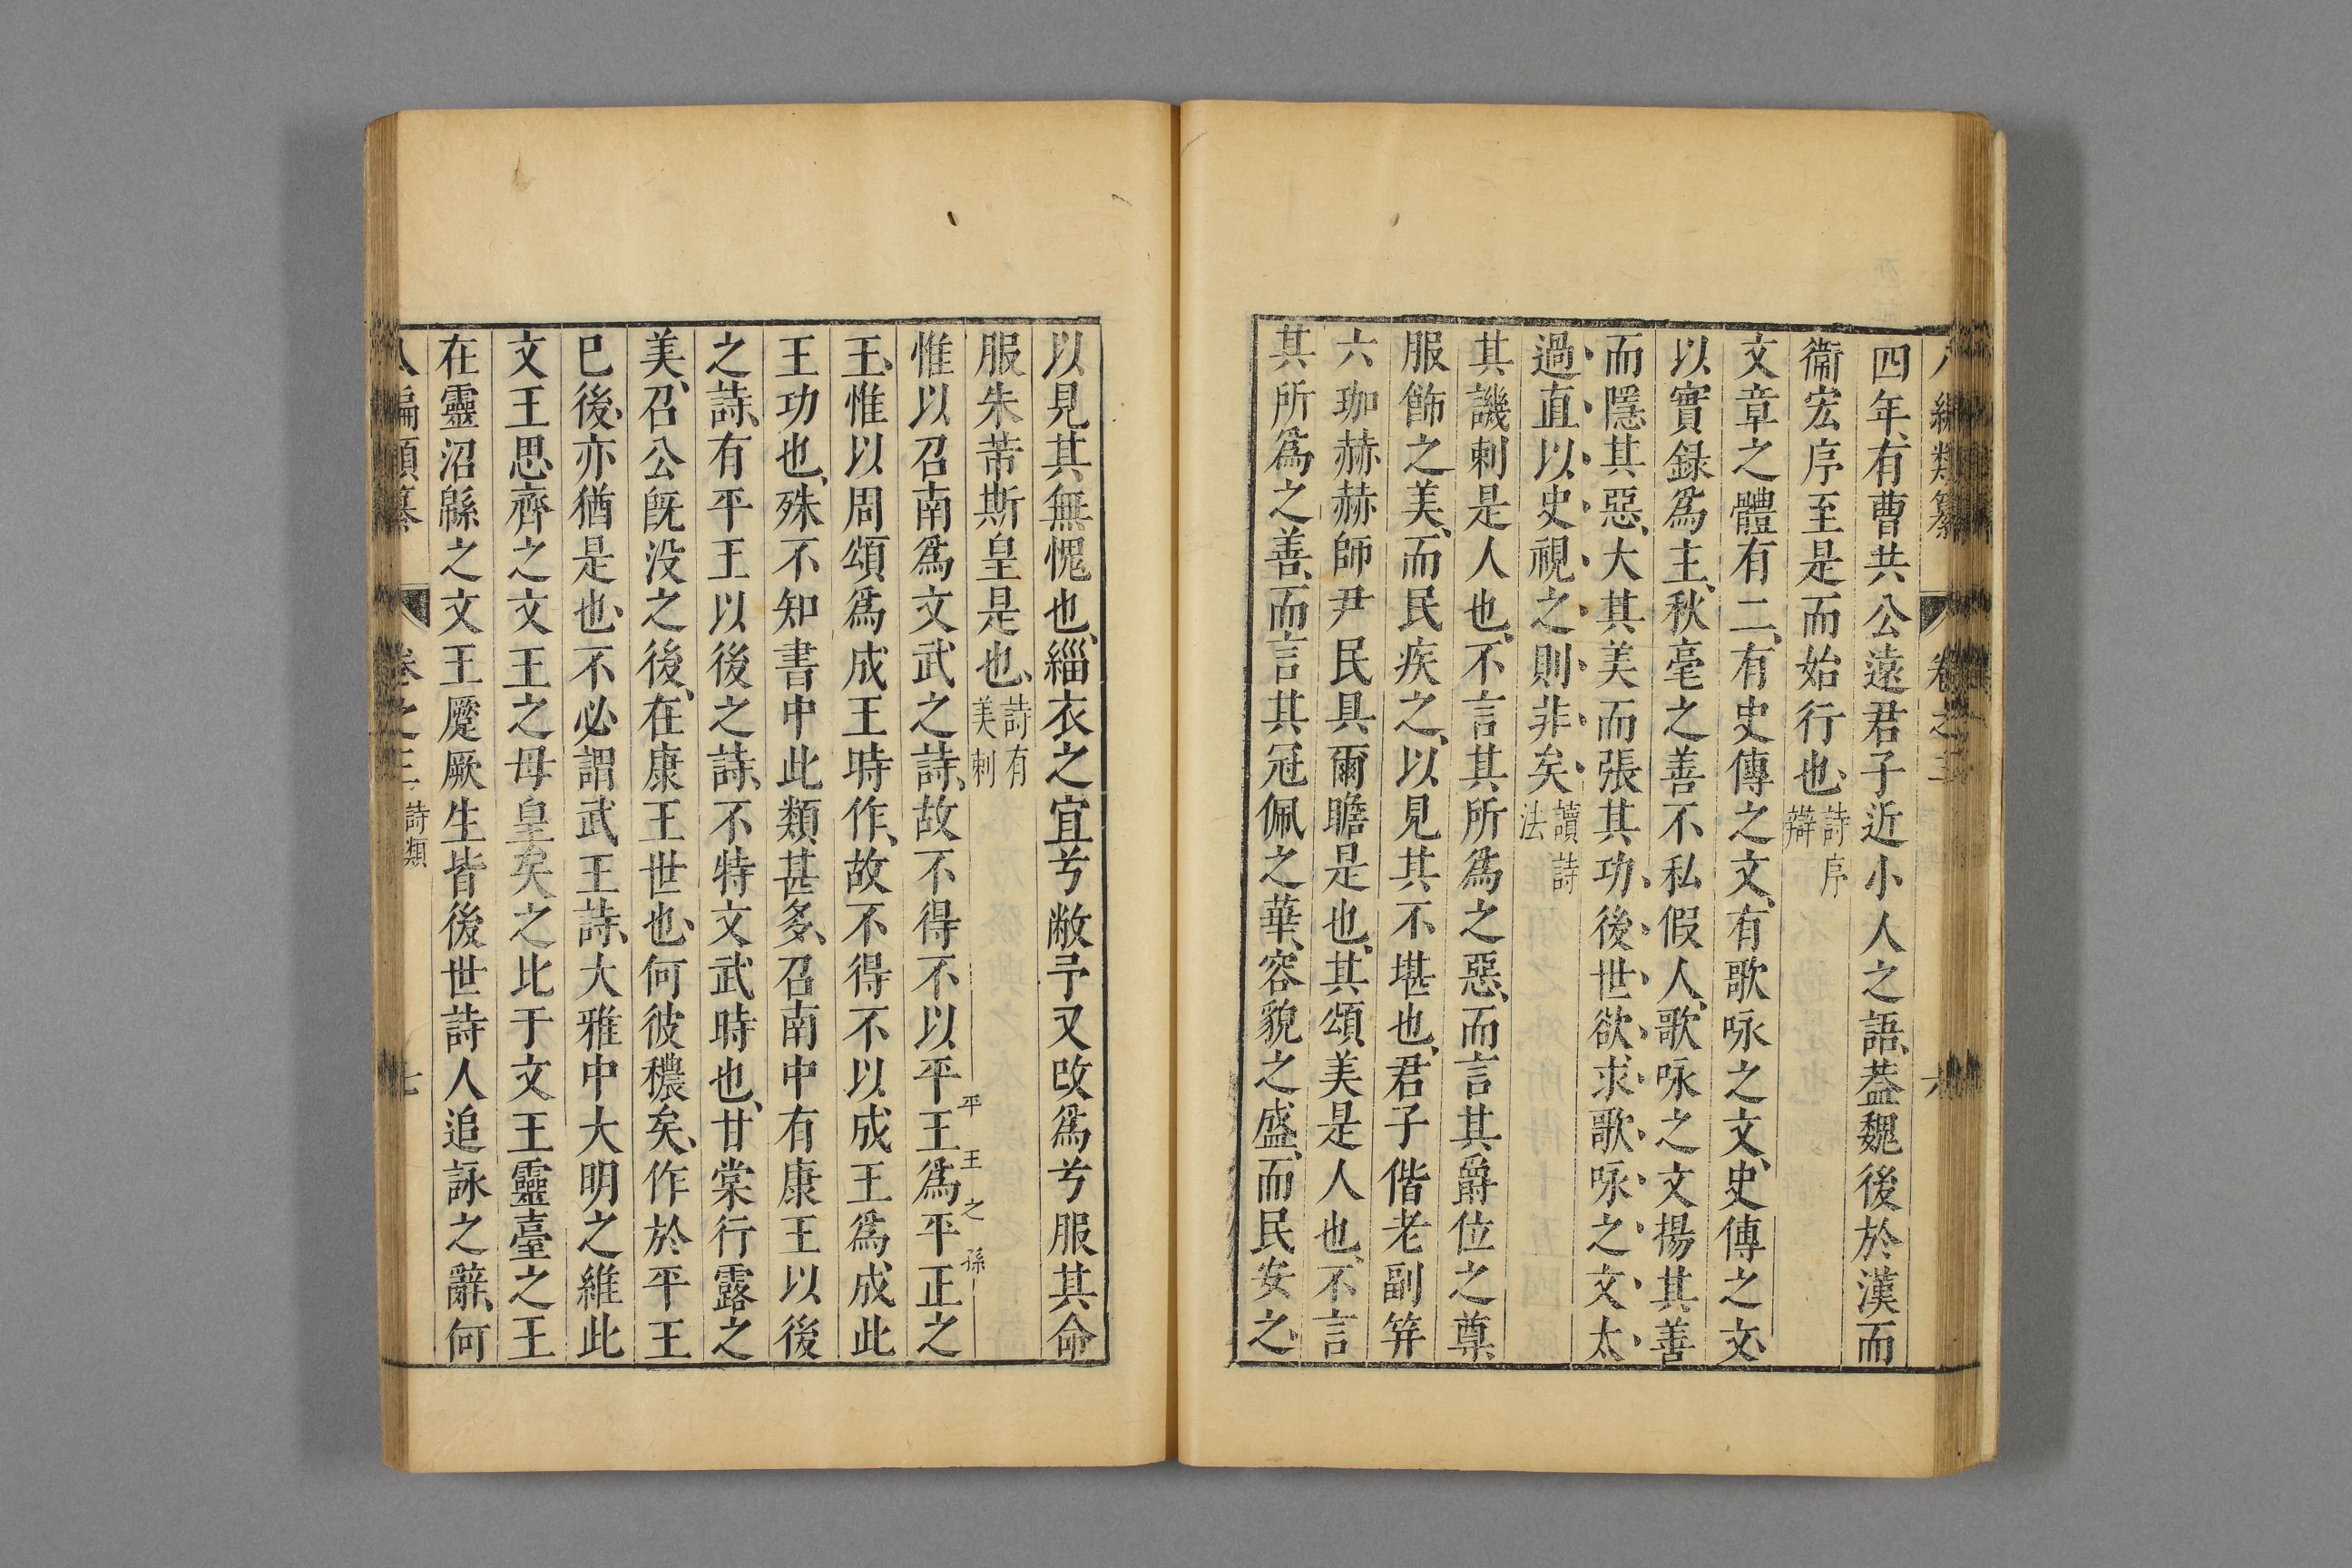 八編類纂 卷之三 六
四年、有曹共公遠君子近小人之語、葢魏後於漢而
衞宏序至是而始行也、詩序辯
文章之體有二、有史傳之文、有歌咏之文、史傳之文、
以實錄爲主、秋毫之善不私假人、歌咏之文揚其善
而隱其惡、大其美而張其功、後世欲求歌咏之文太
過、直以史視之則非矣、讀詩法
其譏刺是人也、不言其所爲之惡、而言其爵位之尊
服飾之美、而民疾之、以見其不堪也、君子偕老副笄
六珈赫赫師尹民具爾瞻是也、其頌美是人也、不言
其所爲之善、而言其冠佩之華、容貌之盛、而民安之、
以見其無愧也、緇衣之宜兮敝予又改爲兮服其命
服朱芾斯皇是也、詩有美刺
惟以召南爲文武之詩、故不得不以平王爲平正之
平王之孫
王、惟以周頌爲成王時作、故不得不以成王爲成此
王功也、殊不知書中此類甚多、召南中有康王以後
之詩、有平王以後之詩、不特文武時也、甘棠行露之
美、召公旣没之後、在康王世也、何彼穠矣、作於平王
已後、亦猶是也、不必謂武王詩、大雅中大明之維此
文王思齊之文王之母皇矣之比于文王靈臺之王
在靈沼緜之文王蹷厥生皆後世詩人追詠之辭、何
八編類纂 卷之三 詩類 七